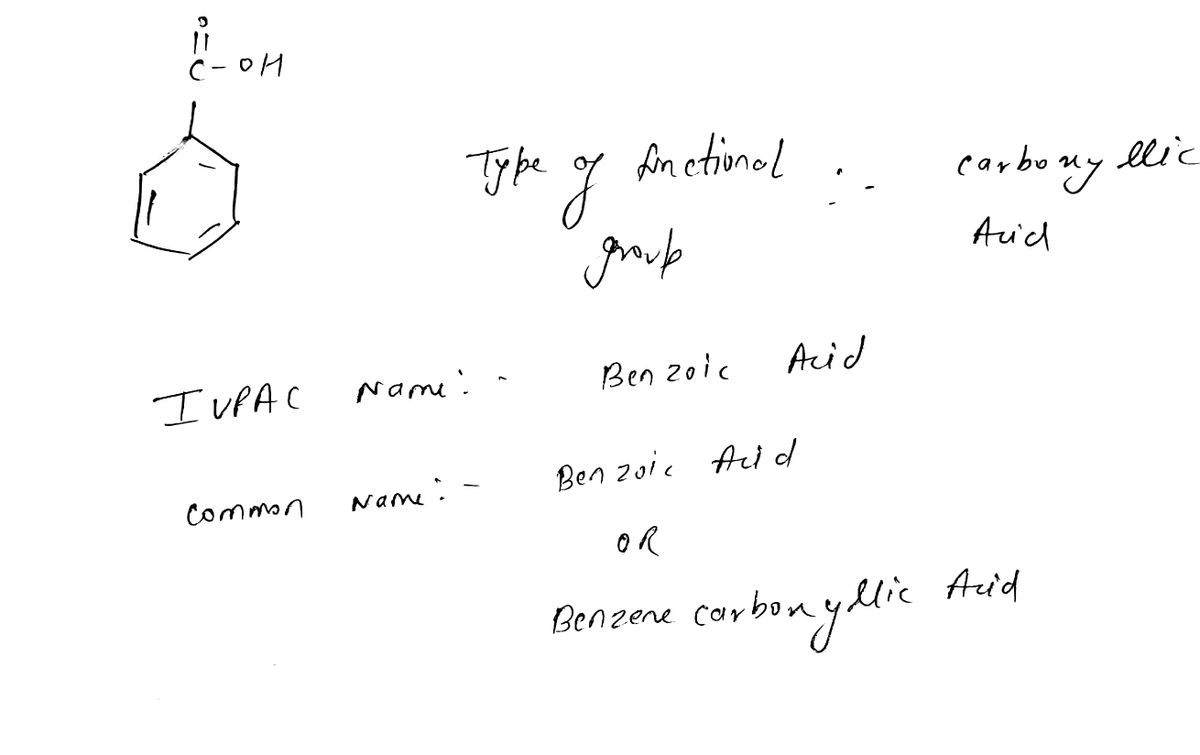 O
C-OH
Type of functional :- carboxyllic
group Acid
IUPAC Name:- Benzoic Acid
Common Name:- Benzoic Acid
OR
Benzene carboxyllic Acid